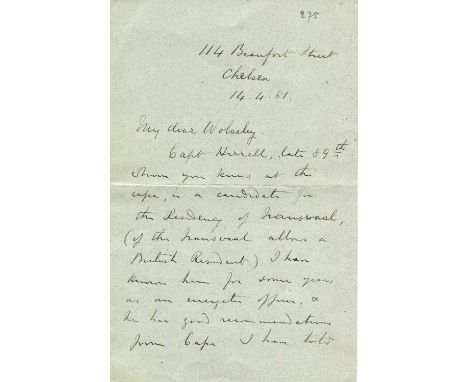 275
114 Beaufort Street
Chelsea
14.4.81.
My dear Wolseley
Capt Hirrell, late 89th
whom you knew at the
cape, is a candidate for
the Residency of Transvaal,
(if the Transvaal allows a
British Resident.) I have
known him for some years
as an energetic officer, &
he has good recommendations
from Cape. I have told